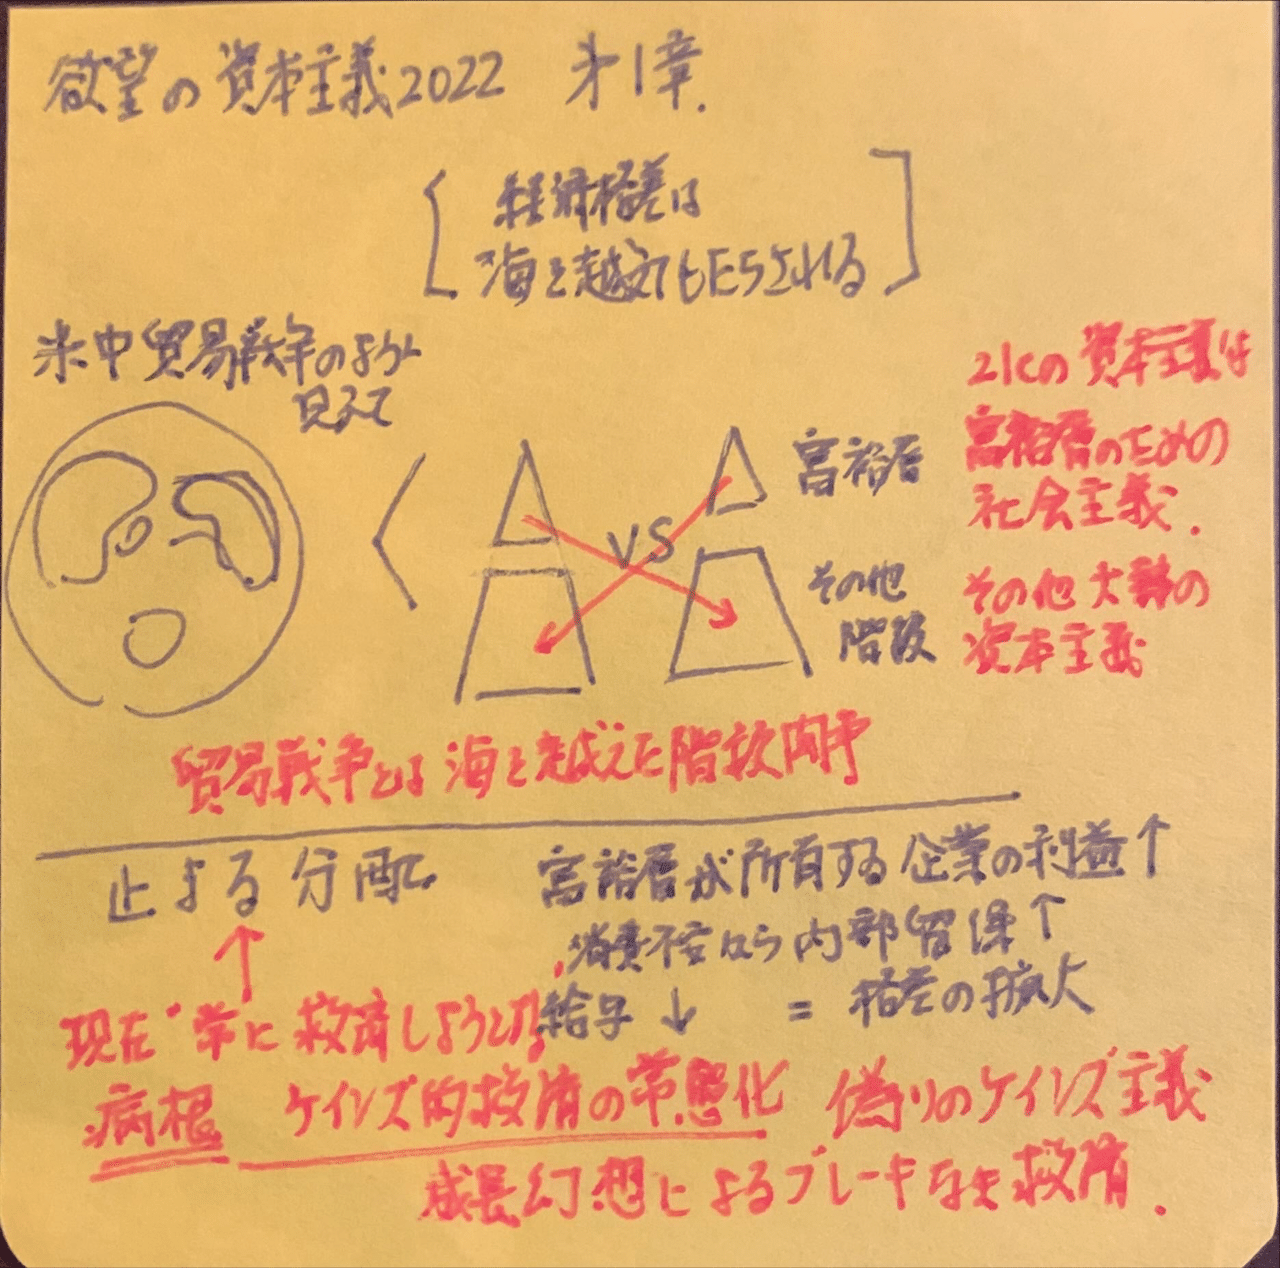 欲望の資本主義2022 第1章.
経済格差は
海を越えてもたらされる
米中貿易戦争のよう
見えて
VS
富裕層
その他
階級
21cの資本主義は
富裕層のための
社会主義.
その他大勢の
資本主義
貿易戦争とは海を越えた階級闘争
止まる分配
富裕層が所有する企業の利益↑
消費不安なら内部留保↑
給与↓ = 格差の拡大
現在 常に救済しようとする
病根 ケインズ的救済の常態化 偽りのケインズ主義
成長幻想によるブレーキなき救済.